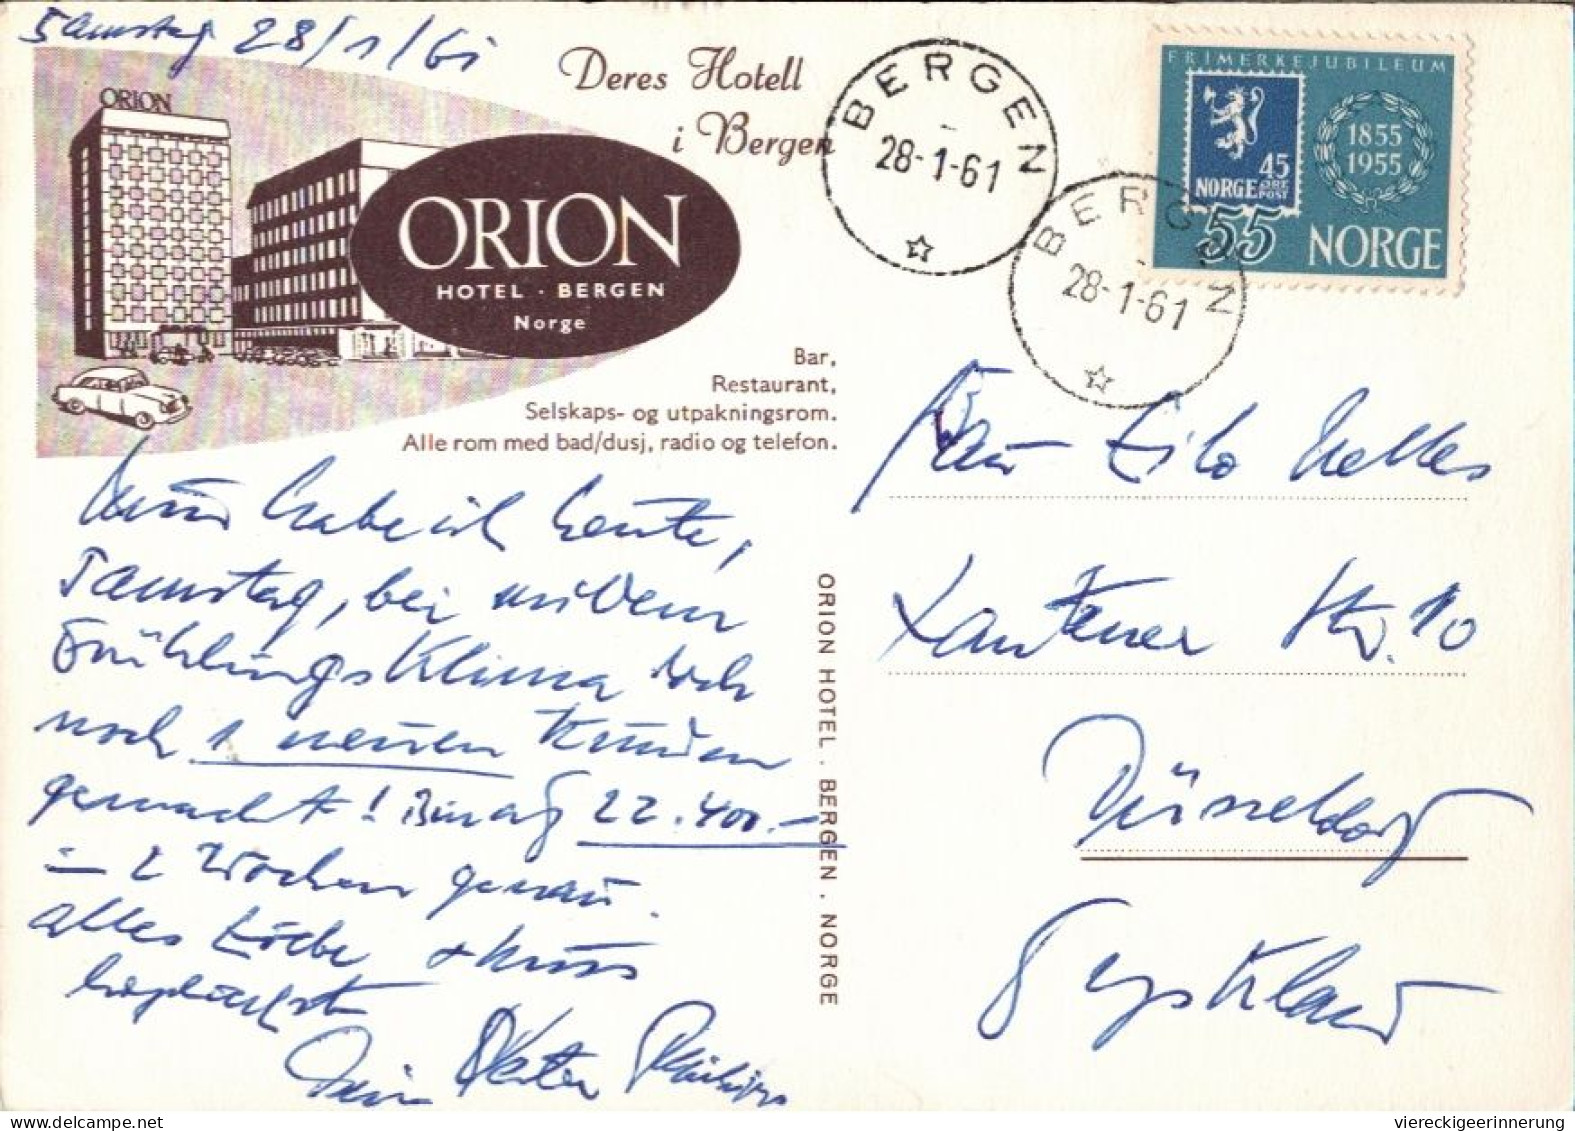 Samstag 28/1/61
ORION
Deres Hotell
i Bergen
ORION
HOTEL · BERGEN
Norge
Bar,
Restaurant,
Selskaps- og utpakningsrom.
Alle rom med bad/dusj, radio og telefon.
BERGEN
28-1-61
BERGEN
28-1-61
FRIMERKEJUBILEUM
45
NORGE ØRE
POST
1855
1955
55 NORGE
habe ich heute,
Samstag, bei mildem
Frühlingsklima doch
noch 1 neuen Kunden
gemacht! 22.400.–
in 2 Wochen genau.
alles Liebe + Kuss
Dein
ORION HOTEL . BERGEN . NORGE
Frau
Xantener Str. 10
Düsseldorf
viereckigeerinnerung